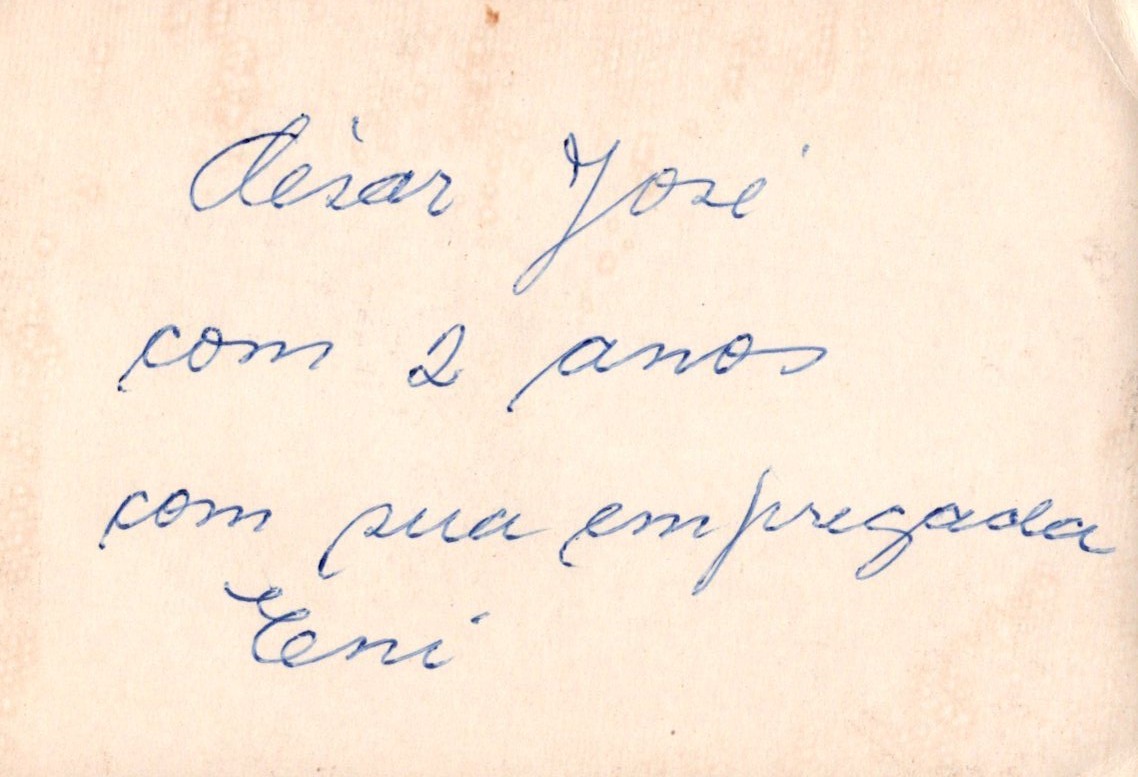 César José
com 2 anos
com sua empregada
Eni